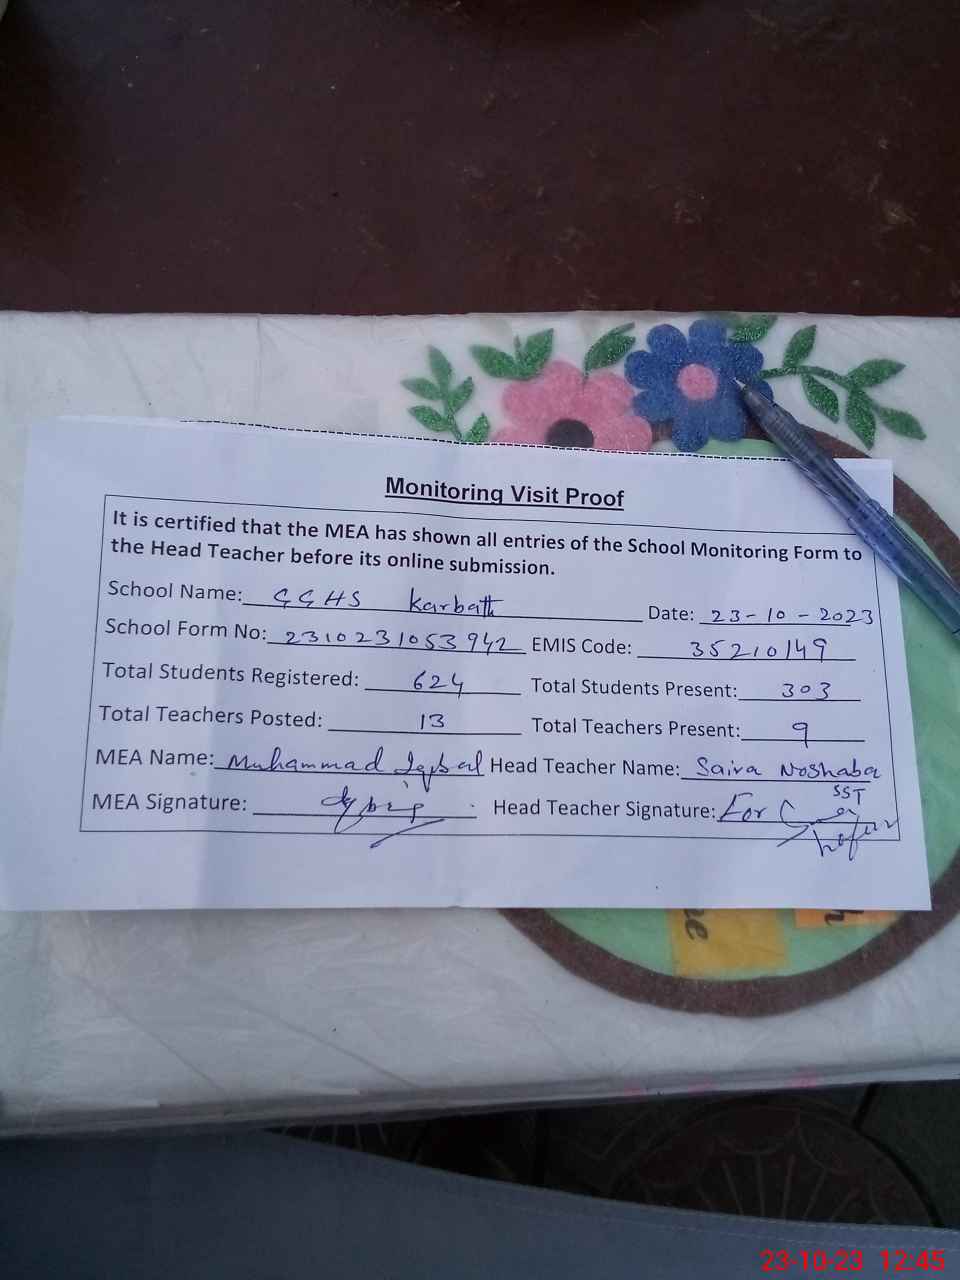 Monitoring Visit Proof
It is certified that the MEA has shown all entries of the School Monitoring Form to
the Head Teacher before its online submission.
School Name: GGHS Karbath Date: 23-10-2023
School Form No: 2310231053942 EMIS Code: 35210149
Total Students Registered: 624 Total Students Present: 303
Total Teachers Posted: 13 Total Teachers Present: 9
MEA Name: Muhammad Iqbal Head Teacher Name: Saira Noshaba
SST
MEA Signature: Head Teacher Signature: For
23-10-23 12:45